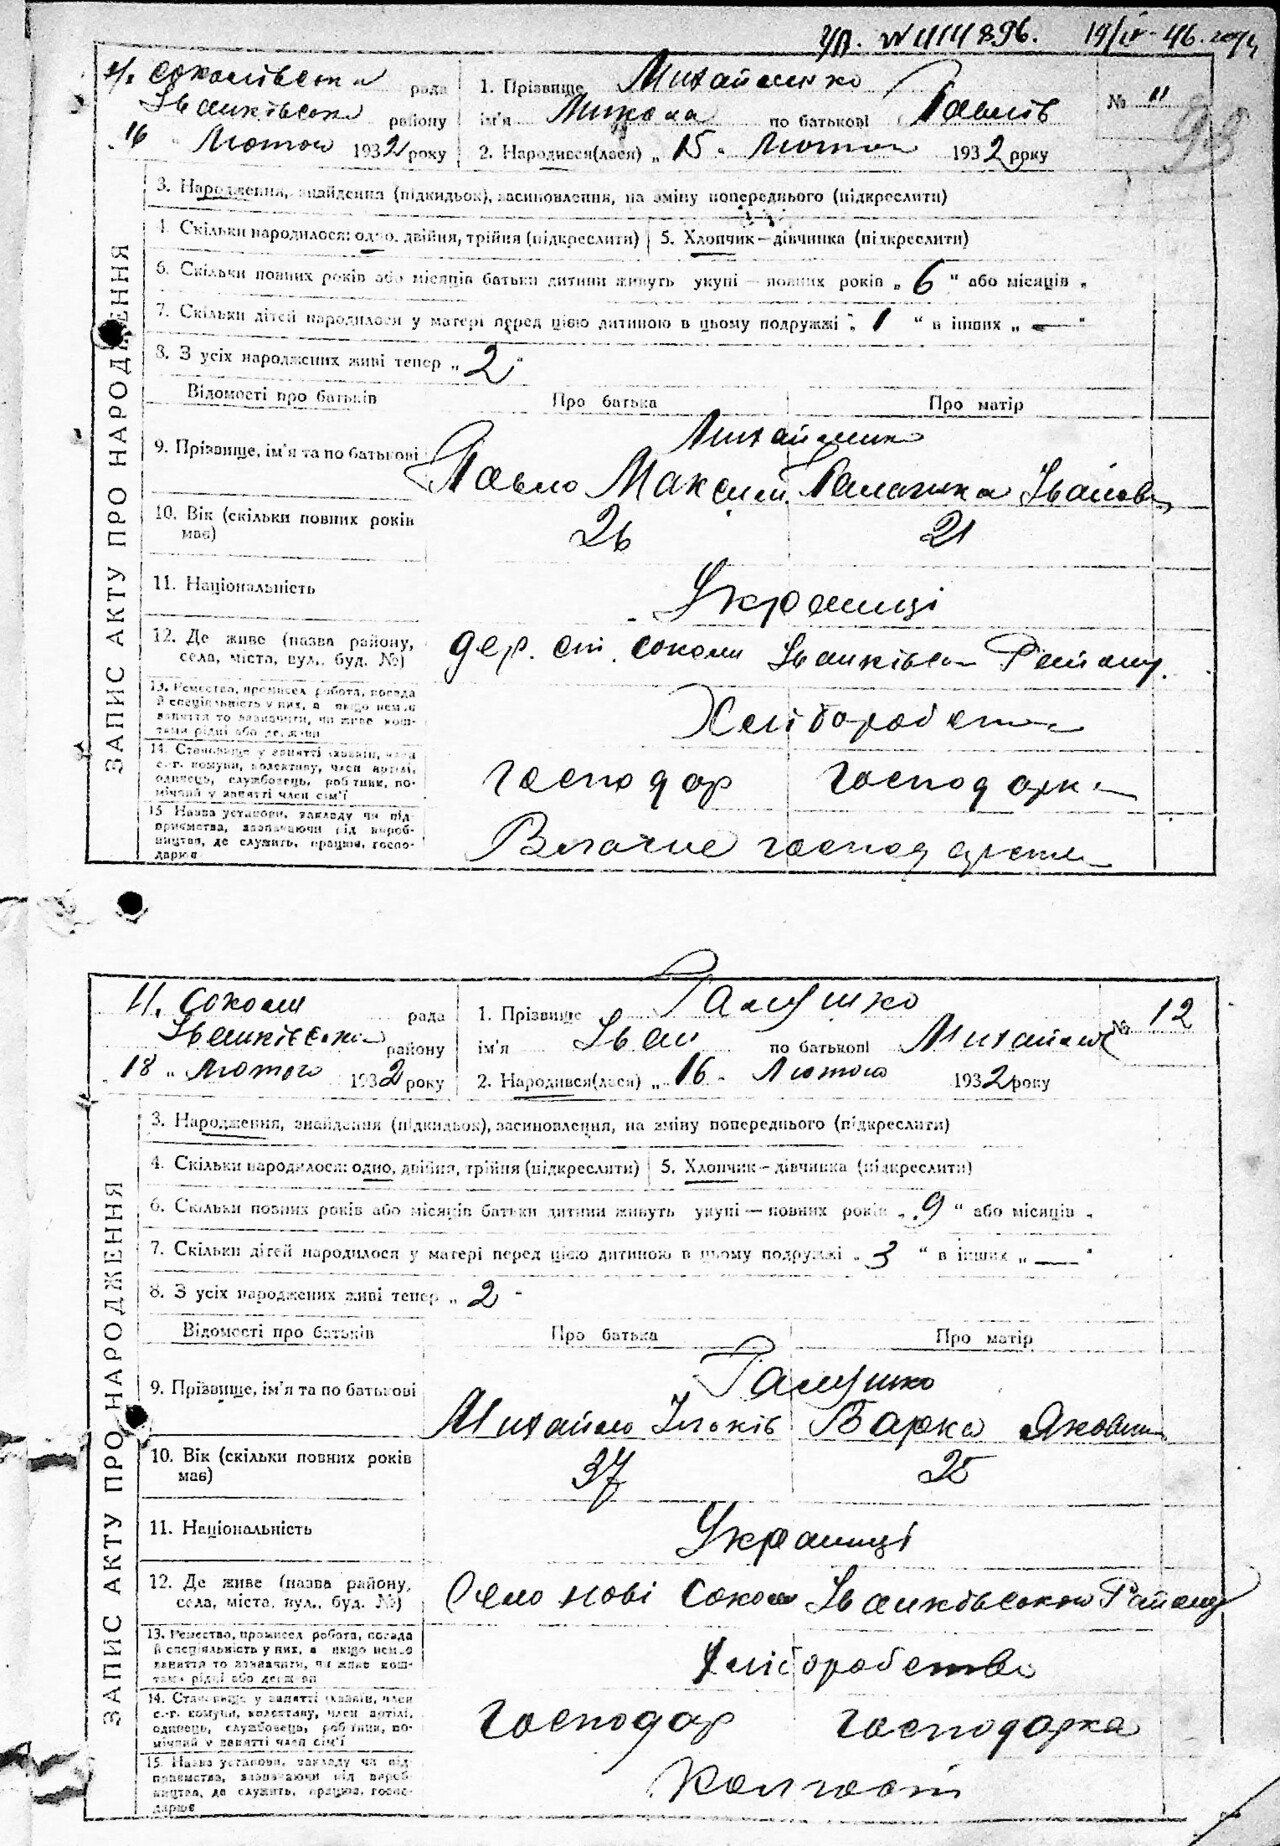 19/IV-46
98
Н. Соколівська рада
Іванківськ району
16 " Лютого 1932 року
1. Прізвище Михайленко
ім'я Микола по батькові Павлів
№ 11
2. Народився(лася) „ 15 " Лютого 1932 року
ЗАПИС АКТУ ПРО НАРОДЖЕННЯ
3. Народження, знайдення (підкидьок), засиновлення, на зміну попереднього (підкреслити)
4. Скільки народилося: одно, двійня, трійня (підкреслити) 5. Хлопчик — дівчинка (підкреслити)
6. Скільки повних років або місяців батьки дитини живуть укупі — повних років „ 6 " або місяців „
7. Скільки дітей народилося у матері перед цією дитиною в цьому подружжі „ 1 " в інших „ — "
8. З усіх народжених живі тепер „ 2 "
Відомості про батьків Про батька Про матір
9. Прізвище, ім'я та по батькові
Михайленко
Павло Максим. Палажка Іванов
10. Вік (скільки повних років має) 26 21
11. Національність Украінці
12. Де живе (назва району, села, міста, вул., буд. №)
дер. ст. соколи Іванківськ Району.
13. Ремество, промисел робота, посада й спеціяльність у них, а якщо немає заняття то зазначити, чи живе коштами рідні або держави
Хліборобство
14. Становище у занятті (хазяїн, член с.-г. комуни, колективу, член артілі, одинець, службовець, робітник, помічний у занятті член сім'ї
господар господарка
15. Назва установи, закладу чи підприємства, зазначаючи рід виробництва, де служить, працює, господарює
Власне господарство
Н. Соколи рада
Іванківсько району
18 „ Лютого 1932 року
1. Прізвище Галушко
ім'я Іван по батькові Михайлов
№ 12
2. Народився(лася) „ 16 " Лютого 1932 року
ЗАПИС АКТУ ПРО НАРОДЖЕННЯ
3. Народження, знайдення (підкидьок), засиновлення, на зміну попереднього (підкреслити)
4. Скільки народилося: одно, двійня, трійня (підкреслити) 5. Хлопчик — дівчинка (підкреслити)
6. Скільки повних років або місяців батьки дитини живуть укупі — повних років „ 9 " або місяців „
7. Скільки дітей народилося у матері перед цією дитиною в цьому подружжі „ 3 " в інших „ — "
8. З усіх народжених живі тепер „ 2 "
Відомості про батьків Про батька Про матір
9. Прізвище, ім'я та по батькові
Галушко
Михайло Ільків Варка Яковна
10. Вік (скільки повних років має) 37 25
11. Національність Украінці
12. Де живе (назва району, села, міста, вул., буд. №)
Село нові Соколи Іванківського Району
13. Ремество, промисел робота, посада й спеціяльність у них, а якщо немає заняття то зазначити, чи живе коштами рідні або держави
Хліборобство
14. Становище у занятті (хазяїн, член с.-г. комуни, колективу, член артілі, одинець, службовець, робітник, помічний у занятті член сім'ї
господар господарка
15. Назва установи, закладу чи підприємства, зазначаючи від виробництва, де служить, працює, господарює
Колгосп